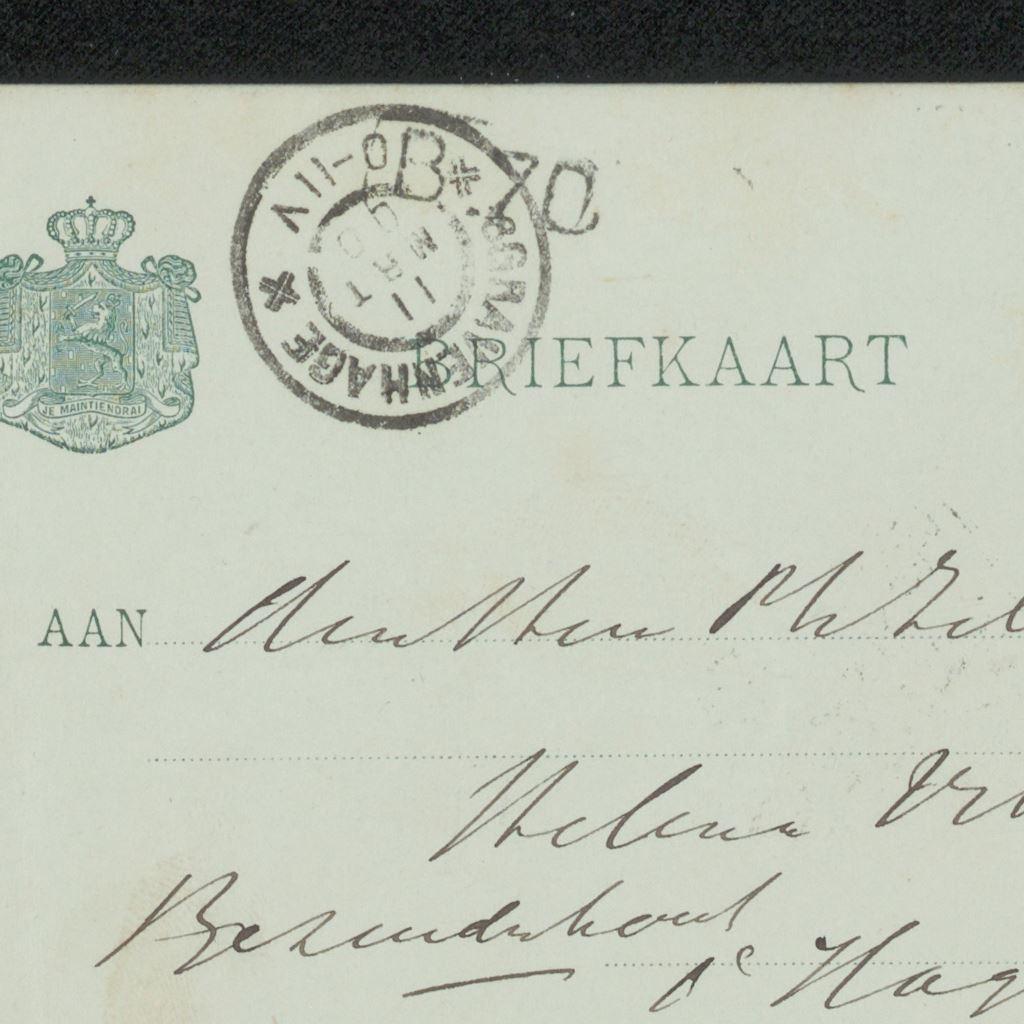 'SGRAVENHAGE
11 MRT 00
V 11-0
B 70
JE MAINTIENDRAI
BRIEFKAART
AAN den Heer Ph Zil
Helena
Bezuidenhout
's Hag